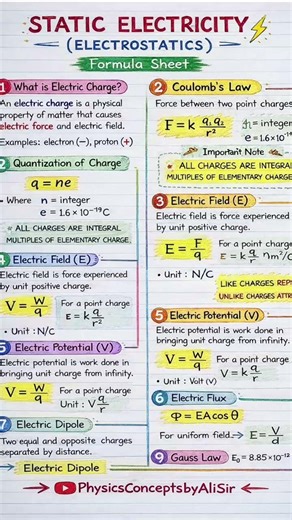 STATIC ELECTRICITY
(ELECTROSTATICS)
Formula Sheet
1 What is Electric Charge?
An electric charge is a physical
property of matter that causes
electric force and electric field.
Examples: electron (−), proton (+)
2 Quantization of Charge
q = ne
• Where n = integer
e = 1.6 × 10⁻¹⁹C
★ ALL CHARGES ARE INTEGRAL
MULTIPLES OF ELEMENTARY CHARGE.
4 Electric Field (E)
Electric field is force experienced
by unit positive charge.
V = W/q For a point charge
E = k q/r²
• Unit: N/C
5 Electric Potential (V)
Electric potential is work done in
bringing unit charge from infinity.
V = W/q For a point charge
Unit: V q/r
7 Electric Dipole
Two equal and opposite charges
separated by distance.
Electric Dipole
2 Coulomb's Law
Force between two point charges
F = k q₁ q₂/r² = integer
e = 1.6×10⁻¹⁹
Important Note
★ ALL CHARGES ARE INTEGRAL
MULTIPLES OF ELEMENTARY CHARGE
3 Electric Field (E)
Electric field is force experienced
by unit positive charge.
E = F/q For a point charge
E = k r/r² m²/C
• Unit : N/C
LIKE CHARGES REP
UNLIKE CHARGES ATTR
5 Electric Potential (V)
Electric potential is work done in
bringing unit charge from infinity.
V = W/q For a point charge
V = k q/r
• Unit : Volt (v)
6 Electric Flux
Φ = EA cos θ
For uniform field → E = V/d
9 Gauss Law E₀ = 8.85×10⁻¹²
PhysicsConceptsbyAliSir